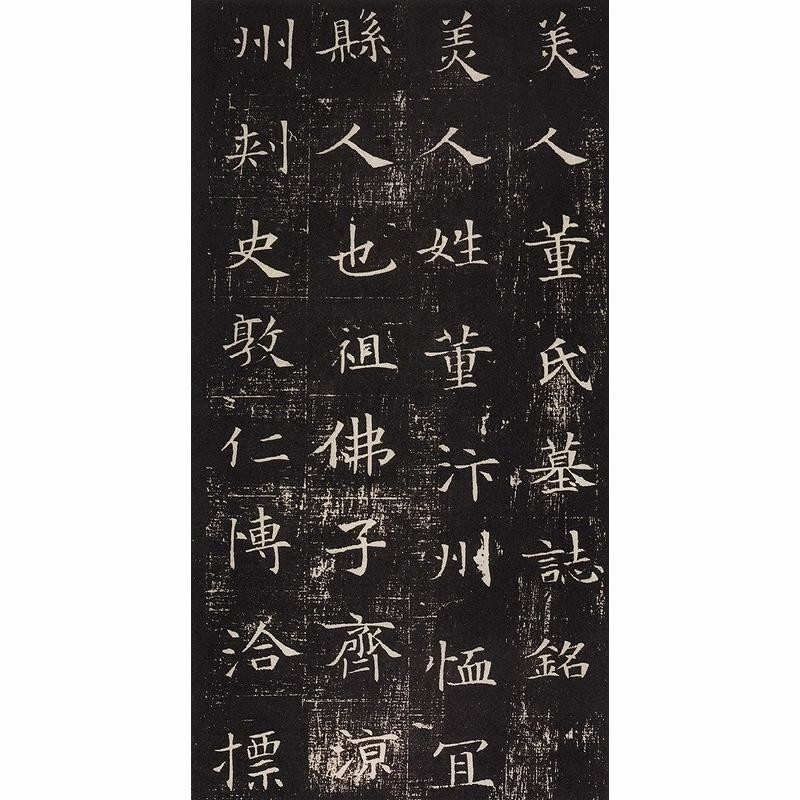 美人董氏墓誌銘
美人姓董汴州恤冝
縣人也祖佛子齊涼
州刾史敦仁博洽摽